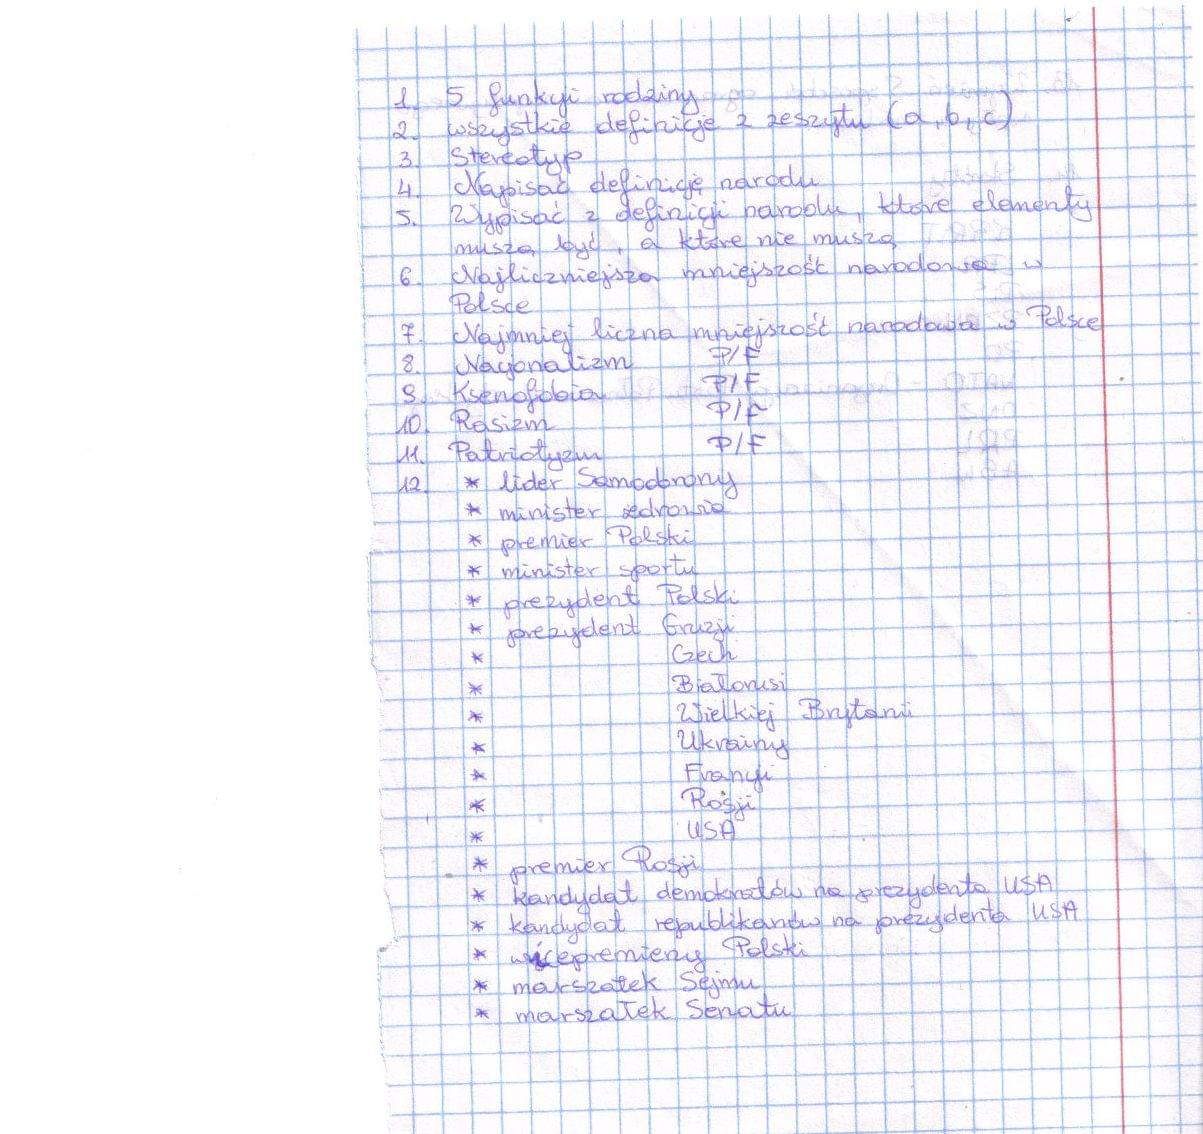 1. 5 funkcji rodziny
2. wszystkie definicje z zeszytu (a, b, c)
3. Stereotyp
4. Napisać definicję narodu
5. Wypisać z definicji narodu, które elementy
muszą być, a które nie muszą
6. Najliczniejsza mniejszość narodowa w
Polsce
7. Najmniej liczna mniejszość narodowa w Polsce
8. Nacjonalizm P/F
9. Ksenofobia P/F
10. Rasizm P/F
11. Patriotyzm P/F
12. * lider Samoobrony
* minister zdrowia
* premier Polski
* minister sportu
* prezydent Polski
* prezydent Gruzji
* Czech
* Białorusi
* Wielkiej Brytanii
* Ukrainy
* Francji
* Rosji
* USA
* premier Rosji
* kandydat demokratów na prezydenta USA
* kandydat republikanów na prezydenta USA
* wicepremierzy Polski
* marszałek Sejmu
* marszałek Senatu